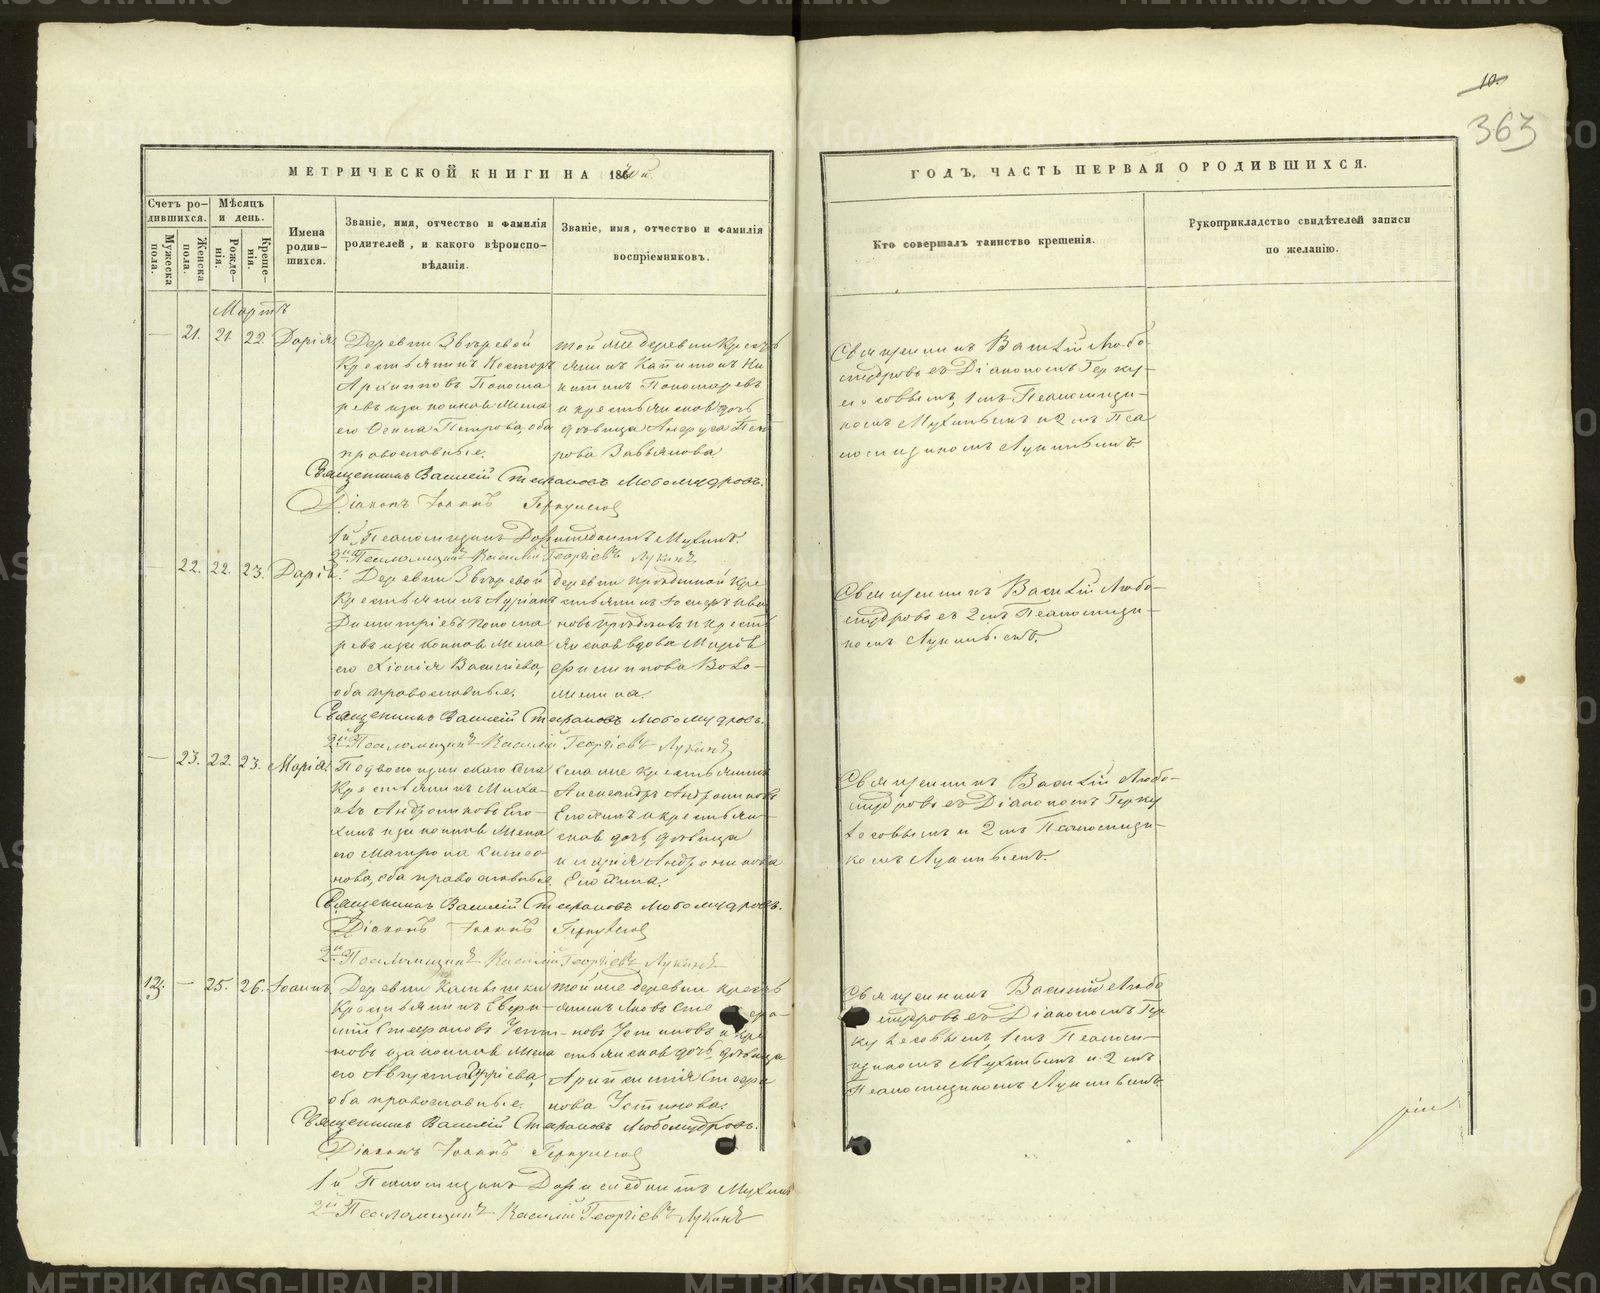 10.
363
МЕТРИЧЕСКОЙ КНИГИ НА 186
ГОДЪ, ЧАСТЬ ПЕРВАЯ О РОДИВШИХСЯ.
Счетъ родившихся.
Мужеска пола.
Женска пола.
Мѣсяцъ и день.
Рожденія.
Крещенія.
Имена родившихся.
Званіе, имя, отчество и фамилія
родителей, и какого вѣроиспо-
вѣданія.
Званіе, имя, отчество и фамилія
воспріемниковъ.
Кто совершалъ таинство крещенія.
Рукоприкладство свидѣтелей записи
по желанію.
Мартъ
21. 21. 22. Дарія
Деревни Звѣревой
Крестьянинъ Несторъ
Архиповъ Понома
ревъ и законная жена
его Петрова, оба
православные.
той же деревни крестъ
янинъ Капитонъ Ни
китинъ Пономаревъ
и крестьянская дочь
дѣвица Пет
рова
Священникъ Василій Любо
мудровъ съ Діакономъ Герку
лесовымъ, 1мъ Псаломщи-
комъ Мухинымъ и 2мъ Пса
ломщикомъ Лукинымъ
Священникъ Василій Стефановъ Любомудровъ.
Діаконъ Іоаннъ Геркулесов
1й Псаломщикъ Доримедонтъ Мухинъ.
2й Псаломщикъ Василій Георгіевъ Лукинъ
22. 22. 23. Дарія
Деревни Звѣревой
Крестьянинъ
Димитріевъ Понома
ревъ и законная жена
его Хіонія Васильева,
оба православные.
деревни кре
стьянинъ Ива
новъ и крест
янская вдова Марія
Филипова
Священникъ Василій Любо-
мудровъ съ 2мъ Псаломщи-
комъ Лукинымъ.
Священникъ Василій Стефановъ Любомудровъ.
2й Псаломщикъ Василій Георгіевъ Лукинъ
23. 22. 23. Марія.
села
Крестьянинъ Миха-
илъ Андрониковъ Ело-
хинъ и законная жена
его Матрона Симео-
нова, оба православные.
села же крестьянинъ
Александръ Андрониковъ
Елохинъ и крестьян-
ская дочь, дѣвица
Андроникова
Елохина.
Священникъ Василій Любо-
мудровъ съ Діакономъ Герку
лесовымъ и 2мъ Псаломщи-
комъ Лукинымъ.
Священникъ Василій Стефановъ Любомудровъ.
Діаконъ Іоаннъ Геркулесов
2й Псаломщикъ Василій Георгіевъ Лукинъ
12. 25. 26. Іоаннъ.
Деревни
Крестьянинъ
Стефановъ Усти-
новъ и законная жена
его Августа
оба православные.
той же деревни крестъ
янинъ Яковъ Стефа-
новъ Устиновъ и кре
стьянская дочь, дѣвица
Стефа
нова Устинова.
Священникъ Василій Любо
мудровъ съ Діакономъ Гер
кулесовымъ, 1мъ Псалом-
щикомъ Мухинымъ и 2мъ
Псаломщикомъ Лукинымъ
Священникъ Василій Стефановъ Любомудровъ.
Діаконъ Іоаннъ Геркулесов
1й Псаломщикъ Доримедонтъ Мухинъ
2й Псаломщикъ Василій Георгіевъ Лукинъ
METRIKI.GASO-URAL.RU